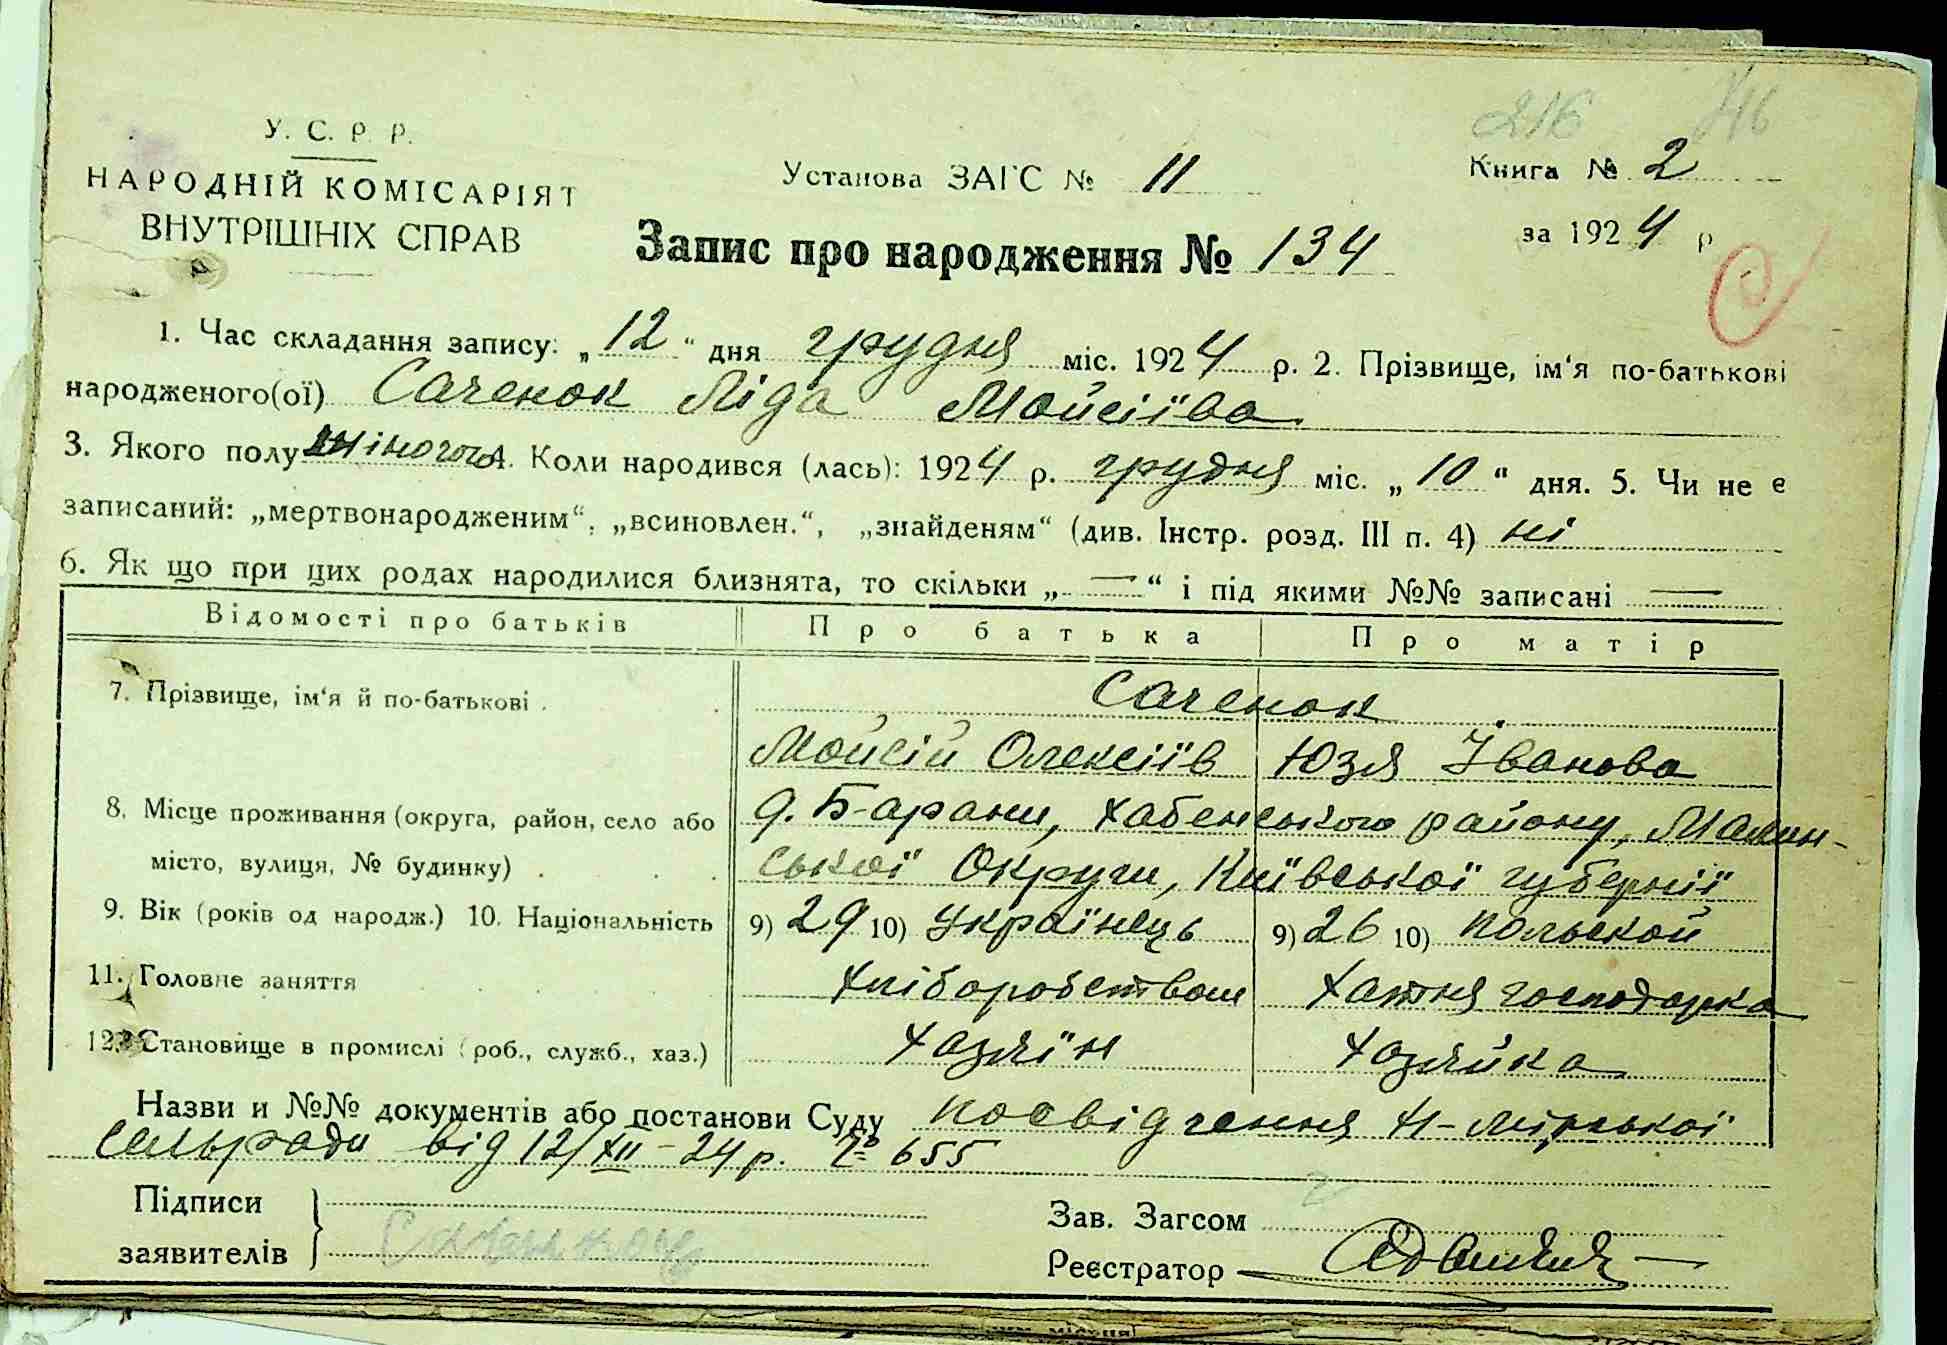 216 46
У. С. Р. Р.
НАРОДНІЙ КОМІСАРІЯТ
ВНУТРІШНІХ СПРАВ
Установа ЗАГС № 11
Книга № 2
за 1924 р
Запис про народження № 134
1. Час складання запису: „12" дня грудня міс. 1924 р. 2. Прізвище, ім'я по-батькові
народженого(ої) Саченок Ліда Мойсіїва
3. Якого полу жіночого 4. Коли народився (лась): 1924 р. грудня міс. „10" дня. 5. Чи не є
записаний: „мертвонародженим", „всиновлен.", „знайденям" (див. Інстр. розд. III п. 4) ні
6. Як що при цих родах народилися близнята, то скільки „—" і під якими №№ записані —
Відомості про батьків Про батька Про матір
7. Прізвище, ім'я й по-батькові . Саченок
Мойсій Олексіїв Юзя Іванова
8. Місце проживання (округа, район, село або д. Б-арани, Хабенського району, Малин-
місто, вулиця, № будинку) . ської Округи, Київської губернії
9. Вік (років од народж.) 10. Національність 9) 29 10) Українець 9) 26 10) польской
11. Головне заняття хліборобством хатня господарка
12. Становище в промислі (роб., служб., хаз.) хазяїн хазяйка
Назви и №№ документів або постанови Суду посвідчення Н-Мірської
сельради від 12/XII-24 р. № 655
Підписи
заявителів
Зав. Загсом
Реєстратор